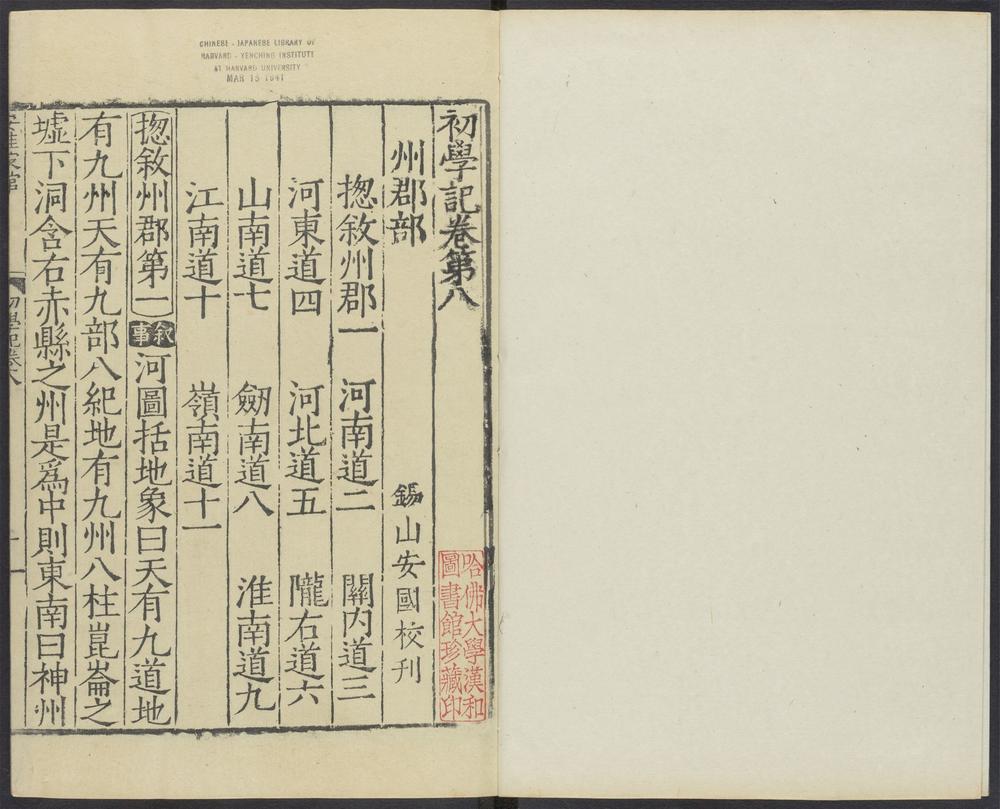 CHINESE - JAPANESE LIBRARY OF
HARVARD - YENCHING INSTITUTE
AT HARVARD UNIVERSITY
MAR 13 1941
初學記卷第八
哈佛大學漢和
圖書館珍藏印
州郡部 錫山安國校刊
揔敘州郡一 河南道二 關内道三
河東道四 河北道五 隴右道六
山南道七 劒南道八 淮南道九
江南道十 嶺南道十一
揔敘州郡第一 敘事 河圖括地象曰天有九道地
有九州天有九部八紀地有九州八柱崑崙之
墟下洞含右赤縣之州是爲中則東南曰神州
初學記卷八